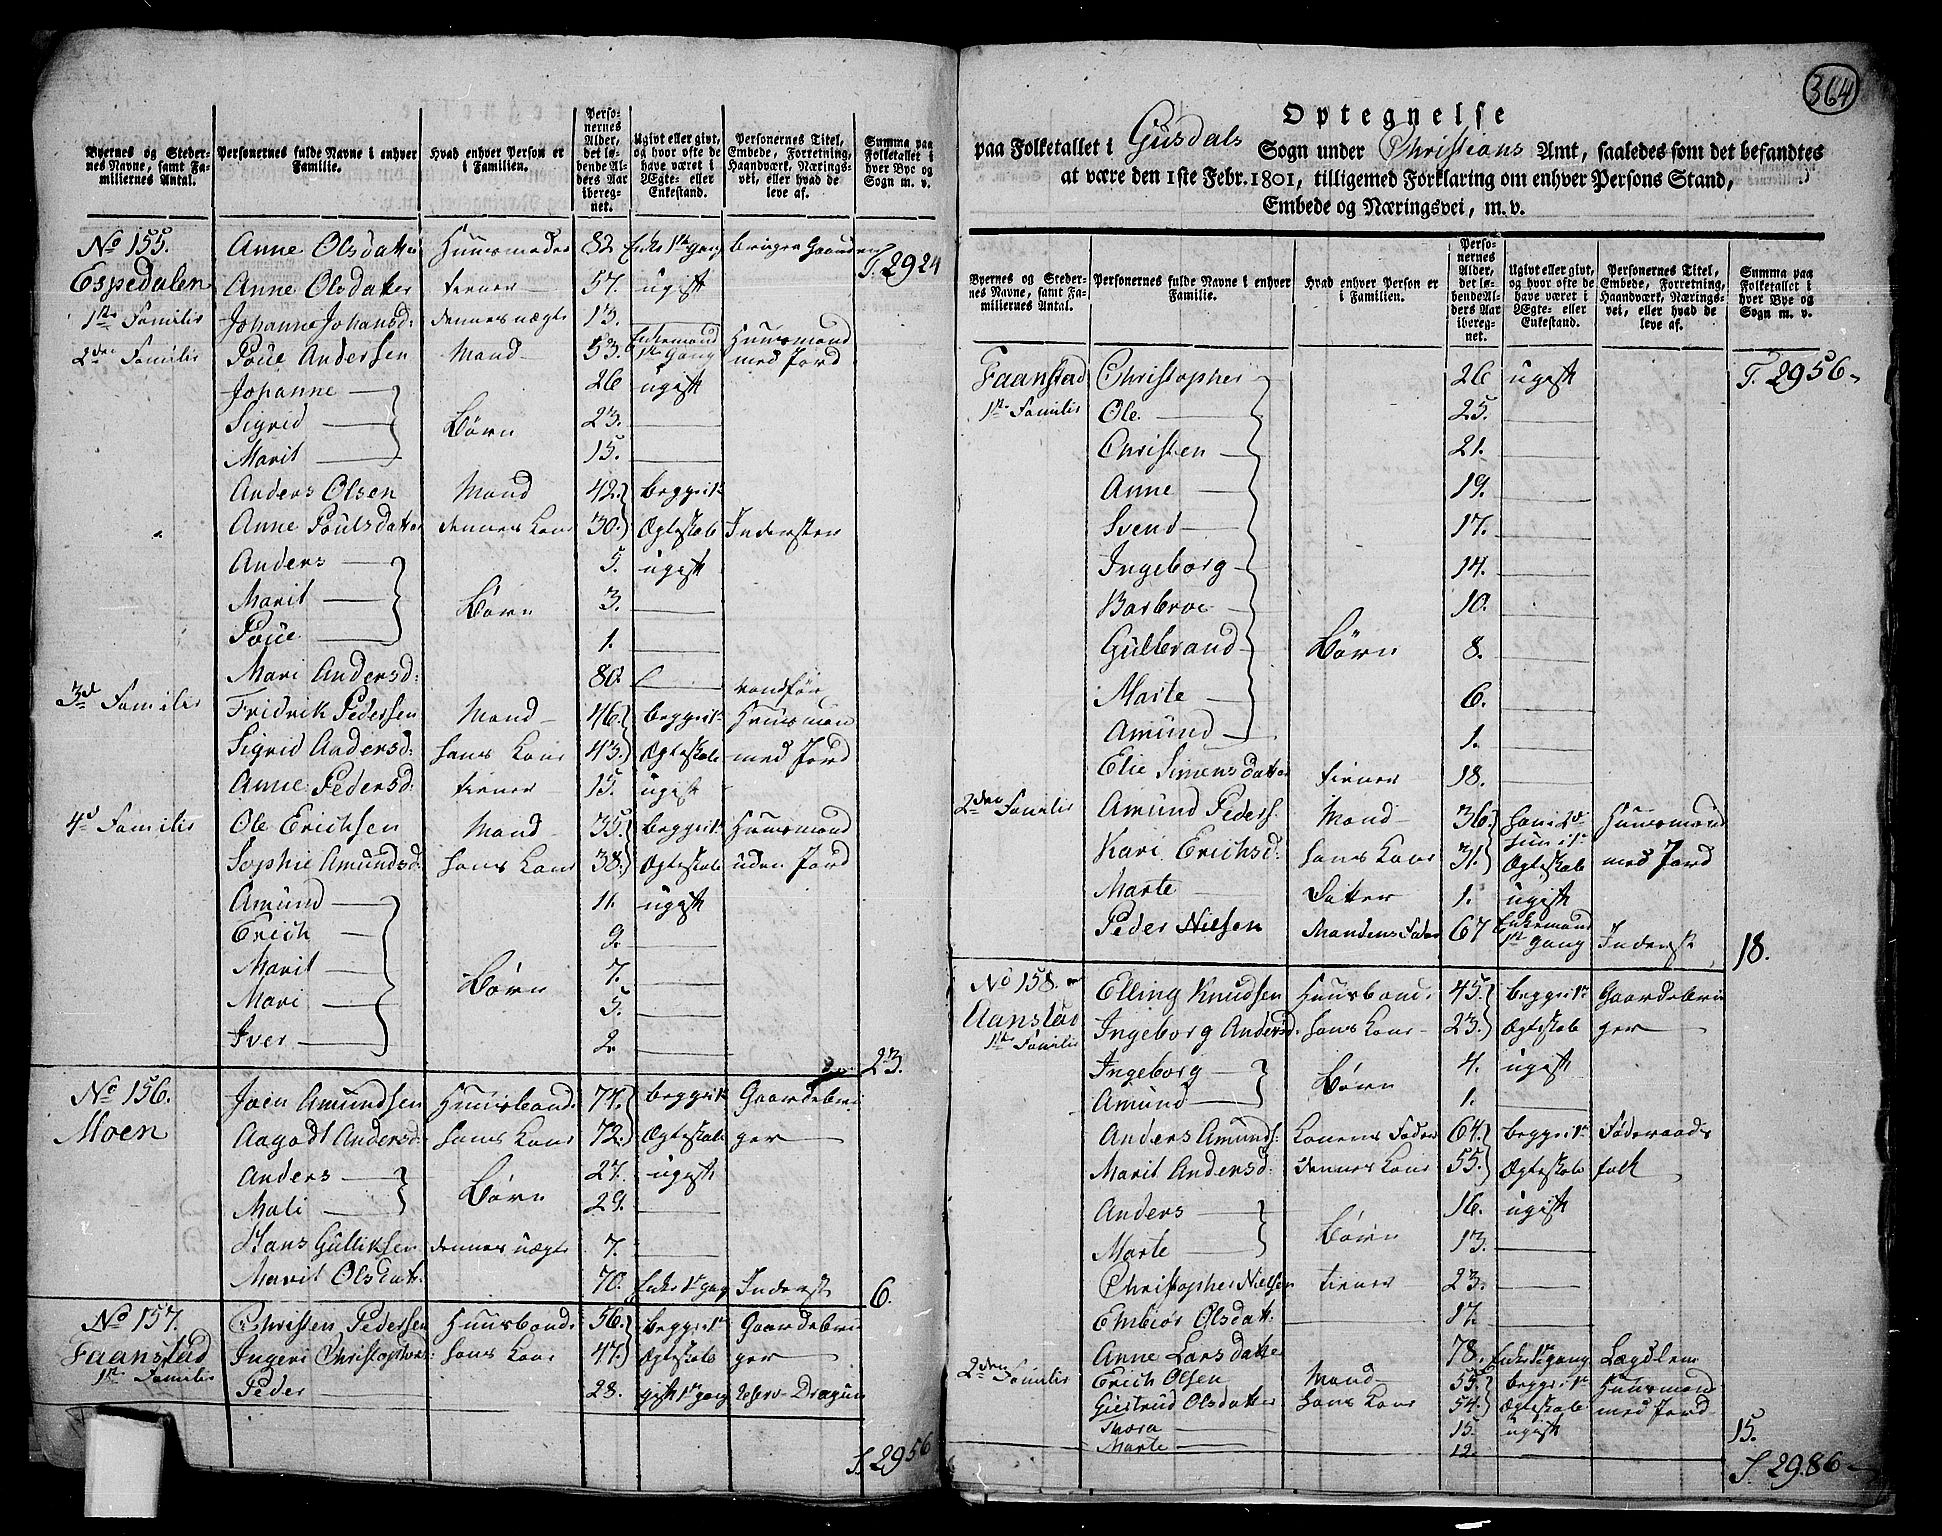 Byernes og Steder-
nes Navne, samt Fa-
miliernes Antal.
Personernes fulde Navne i enhver
Familie.
Hvad enhver Person er
i Familien.
Perso-
nernes
Alder,
det lø-
bende Al-
ders Aar
ibereg-
net.
Ugivt eller givt,
og hvor ofte de
have været i
Ægte- eller
Enkestand.
Personernes Titel,
Embede, Forretning,
Haandværk, Nærings-
vei, eller hvad de
leve af.
Summa paa
Folketallet i
hver Bye og
Sogn m. v.
T. 2924
No 155. Anne Olsdatter Huusmoder 82 Enke 1ste gang bruger Gaarden
Espedalen Anne Olsdatter tiener 57. ugift
1ste Familie Johanne Johansd: dennes 13.
2den Familie Poue Andersen Mand 53. Enkemand 1ste Gang Huusmand med Jord
Johanne 26 ugift
Sigrid Børn 23.
Marit 15.
Anders Olsen Mand 42. begge 1te
Anne Poulsdatter dennes Kone 30. Ægteskab Inderster
Anders 5. ugift
Marit Børn 3.
Poue 1.
Mari Andersd: 80. vandfør
3de Familie Fridrik Pedersen Mand 46. begge 1te Huusmand
Sigrid Andersd: hans Kone 43. Ægteskab med Jord
Anne Pedersd: tiener 15. ugift
4de Familie Ole Erichsen Mand 35. begge 1te Huusmand
Sophie Amundsd: hans Kone 38. Ægteskab uden Jord
Amund 11. ugift
Erich 9.
Marit 7.
Mari Børn 5.
Iver 2.
23.
No 156. Joen Amundsen Huusbonde 74. begge 1te Gaardebru
Moen Aagodt Andersd: hans Kone 72. Ægteskab ger
Anders 27. ugift
Mali Børn 29.
Hans Gulliksen dennes 7.
Marit Olsdatr. 70. Enke 1te gang Inderst
6.
No 157. Christen Pedersen Huusbonde 56. begge 1te Gaardebru
Faanstad Ingeri Christophersd: hans Kone 47. Ægteskab ger
1ste Familie Peder 28. gift 1te gang Reserv Dragun
S. 2956
364
Optegnelse
paa Folketallet i Gusdals Sogn under Christians Amt, saaledes som det befandtes
at være den 1ste Febr. 1801, tilligemed Forklaring om enhver Persons Stand,
Embede og Næringsvei, m. v.
Byernes og Steder-
nes Navne, samt Fa-
miliernes Antal.
Personernes fulde Navne i enhver
Familie.
Hvad enhver Person er
i Familien.
Perso-
nernes
Alder,
det lø-
bende Al-
ders Aar
ibereg-
net.
Ugivt eller givt,
og hvor ofte de
have været i
Ægte- eller
Enkestand.
Personernes Titel,
Embede, Forretning,
Haandværk, Nærings-
vei, eller hvad de
leve af.
Summa paa
Folketallet i
hver Bye og
Sogn m. v.
Faanstad Christopher 26 ugift T. 2956
1ste Familie Ole 25.
Christen 21.
Anne 19.
Svend 17.
Ingeborg 14.
Barbroe 10.
Gulbrand Børn 8.
Marte 6.
Amund 1.
Elie Simensdatter tiener 18.
2den Familie Amund Peders: Mand 36. han 2de Huusmand
Kari Erichsd: hans Kone 31. hun 1te Ægteskab med Jord
Marte Datter 1. ugift
Peder Nielsen Mandens Fader 67 Enkemand 1ste Gang Inderst
18.
No 158. Elling Knudsen Huusbonde 45. begge 1te Gaardebru
Aanstad Ingeborg Andersd: hans Kone 23. Ægteskab ger
1ste Familie Ingeborg 4. ugift
Amund Børn 1.
Anders Amunds: Konens Fader 64. begge 1te Føderaads
Marit Andersd: dennes Kone 55. Ægteskab folk
Anders 16. ugift
Marte Børn 13.
Christopher Nielsen tiener 23.
Embiør Olsdatt: 17.
Anne Larsdatter 78. Enke 1te gang Lægdlem
2den Familie Erich Olsen Mand 55. begge 1te Huusmand
Giertrud Olsdatter hans Kone 54. Ægteskab med Jord
Thora 15. ugift
Marte 12.
15.
S. 2986